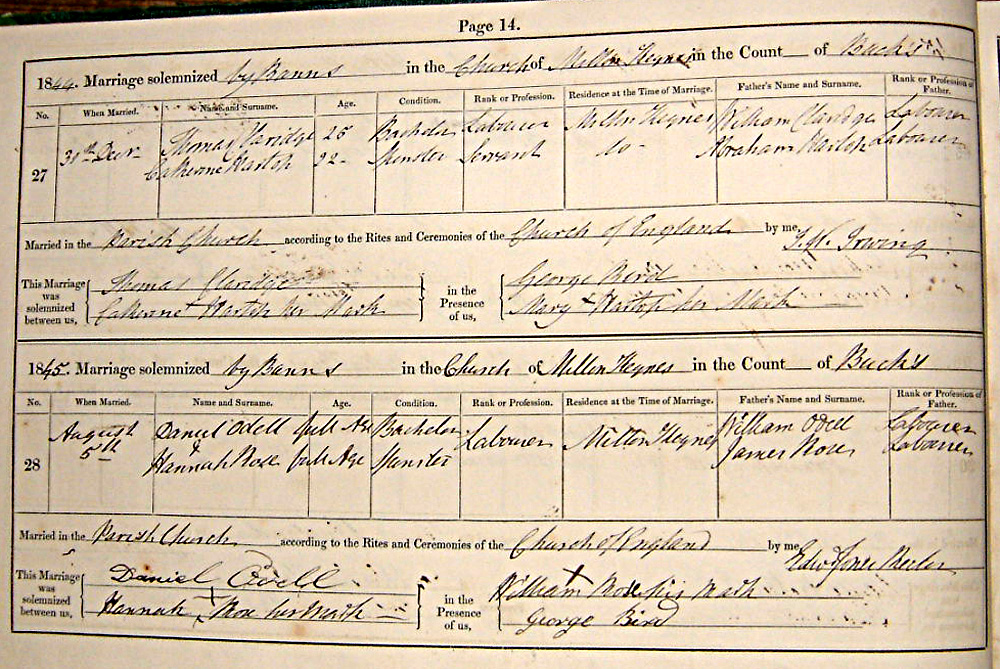 Page 14.
1844. Marriage solemnized by Banns in the Church of Milton Keynes in the Count of Buck's
No. When Married. Name and Surname. Age. Condition. Rank or Profession. Residence at the Time of Marriage. Father's Name and Surname. Rank or Profession of Father.
27 31st Decr Thomas Claridge 25 Bachelor Labourer Milton Keynes William Claridge Labourer
Catherine Hartop 22 Spinster Servant do Abraham Hartop Labourer
Married in the Parish Church according to the Rites and Ceremonies of the Church of England by me, Irwing
This Marriage was solemnized between us, Thomas Claridge in the Presence of us, George Bird
Catherine + Hartop her Mark Mary + Hartop her Mark
1845. Marriage solemnized by Banns in the Church of Milton Keynes in the Count of Buck's
No. When Married. Name and Surname. Age. Condition. Rank or Profession. Residence at the Time of Marriage. Father's Name and Surname. Rank or Profession of Father.
28 August 5th Daniel Odell full Age Bachelor Labourer Milton Keynes William Odell Labourer
& Hannah Rose full Age Spinster James Rose Labourer
Married in the Parish Church according to the Rites and Ceremonies of the Church of England by me,
This Marriage was solemnized between us, Daniel Odell in the Presence of us, William + Rose his Mark
Hannah + Rose her Mark George Bird